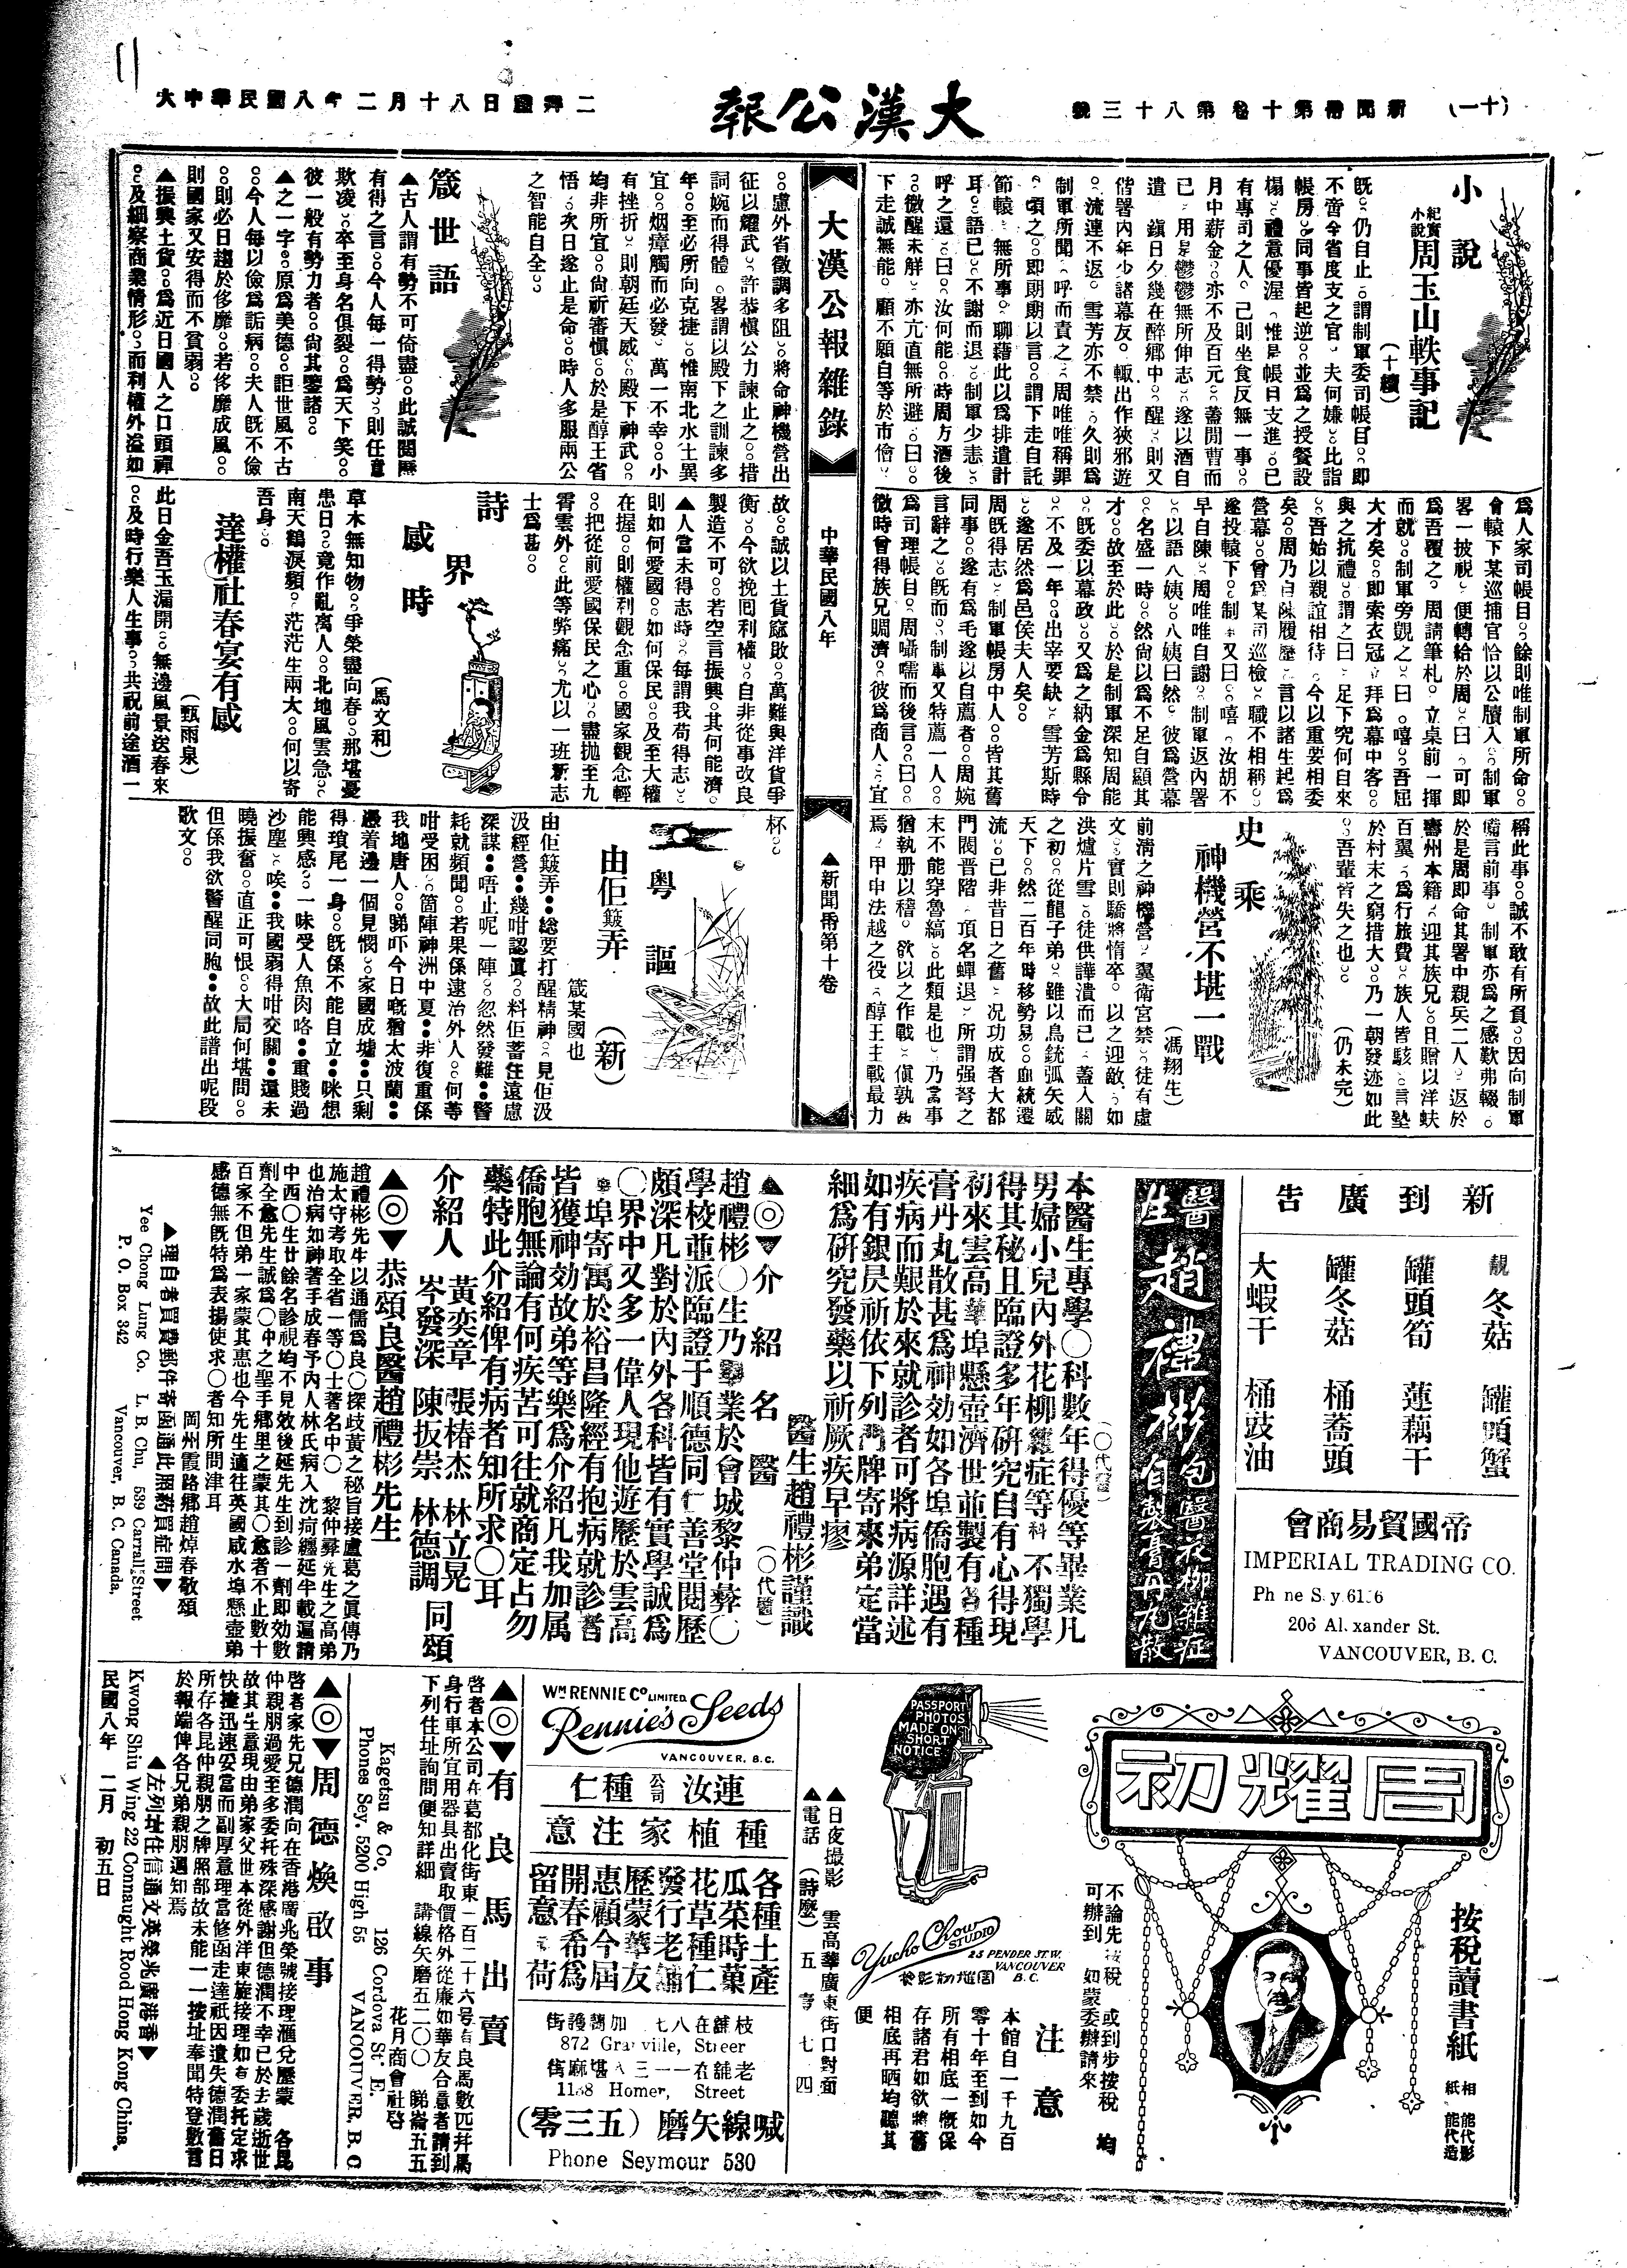 (一十)
新聞冊第十卷第八十三號
大漢公報
大中華民國八年二月十八日禮拜二
小說
紀實小說
周玉山軼事記
(十續)
既。仍自止。謂制軍委司帳目。即
不啻今省度支之官。夫何嫌。比詣
帳房。同事皆起逆。並為之授餐設
榻。禮意優渥。惟是帳目支進。已
有專司之人。己則坐食反無一事。
月中薪金。亦不及百元。蓋閒曹而
已。用是鬱鬱無所伸志。遂以酒自
遣。鎮日夕幾在醉鄉中。醒則又
偕署內年少諸幕友。輙出作狹邪遊
。流連不返。雪芳亦不禁。久則為
制軍所聞。呼而責之。周唯唯稱罪
。頃之。即期期以言。謂下走自託
節轅。無所事。聊藉此以為排遣計
耳。語已。不謝而退。制軍少恚。
呼之還。曰。汝何能。時周方酒後
。微醒未解。亦亢直無所避。曰。
下走誠無能。顧不願自等於市儈。
為人家司帳目。餘則唯制軍所命。
會轅下某巡捕官恰以公牘入。制軍
畧一披視。便轉給於周。曰。可即
為吾覆之。周請筆札。立桌前一揮
而就。制軍旁覬之。曰。嘻。吾屈
大才矣。即索衣冠。拜為幕中客。
與之抗禮。謂之曰。足下究何自來
。吾始以親誼相待。今以重要相委
矣。周乃自陳履歷。言以諸生起為
營幕。曾為某司巡檢。職不相稱。
遂投轅下。制軍又曰。嘻。汝胡不
早自陳。周唯唯自謝。制軍返內署
。以語八姨。八姨曰然。彼為營幕
。名盛一時。然尙以為不足自顯其
才。故至於此。於是制軍深知周能
。既委以幕政。又為之納金為縣令
。不及一年。出宰要缺。雪芳斯時
。遂居然為邑侯夫人矣。
周既得志。制軍帳房中人。皆其舊
同事。遂有為毛遂以自薦者。周婉
言辭之。既而。制軍又特薦一人。
為司理帳目。周囁嚅而後言。曰。
微時曾得族兄賙濟。彼為商人。宜
稱此事。誠不敢有所負。因向制軍
備言前事。制軍亦為之感歎弗輟。
於是周即命其署中親兵二人。返於
壽州本籍。迎其族兄。且贈以洋蚨
百翼。為行旅費。族人皆駭。言塾
於村末之窮措大。乃一朝發迹如此
。吾輩皆失之也。
(仍未完)
史乘
神機營不堪一戰
(馮翔生)
前清之神機營。翼衛宮禁。徒有虛
文。實則驕將惰卒。以之迎敵。如
洪爐片雪。徒供譁潰而已。蓋入關
之初。從龍子弟。雖以鳥銃弧矢威
天下。然二百年時移勢易。血統遷
流。已非昔日之舊。况功成者大都
門閥晉階。頂名蟬退。所謂强弩之
末不能穿魯縞。此類是也。乃當事
猶執册以稽。欲以之作戰。傎孰甚
焉。甲申法越之役。醇王主戰最力
大漢公報雜錄
中華民國八年
▲新聞冊第十卷
。慮外省徵調多阻。將命神機營出
征以耀武。許恭愼公力諫止之。措
詞婉而得體。畧謂以殿下之訓諫多
年。至必所向克捷。惟南北水土異
宜。烟瘴觸而必發。萬一不幸。小
有挫折。則朝廷天威。殿下神武。
均非所宜。尙祈審愼。於是醇王省
悟。次日遂止是命。時人多服兩公
之智能自全。
箴世語
▲古人謂有勢不可倚盡。此誠閱歷
有得之言。今人每一得勢。則任意
欺凌。卒至身名俱裂。為天下笑。
彼一般有勢力者。尙其鑒諸。
▲之一字。原為美德。詎世風不古
。今人每以儉為詬病。夫人既不儉
。則必日趨於侈靡。若侈靡成風。
則國家又安得而不貧弱。
▲振興土貨。為近日國人之口頭禪
。及細察商業情形。而利權外溢如
故。誠以土貨窳敗。萬難與洋貨爭
衡。今欲挽囘利權。自非從事改良
製造不可。若空言振興。其何能濟。
▲人當未得志時。每謂我苟得志。
則如何愛國。如何保民。及至大權
在握。則權利觀念重。國家觀念輕
。把從前愛國保民之心。盡拋至九
霄雲外。此等弊痛。尤以一班新志
士為甚。
詩界
感時
(馬文和)
草木無知物。爭榮盡向春。那堪憂
患日。竟作亂离人。北地風雲急。
南天鶴淚頻。茫茫生兩大。何以寄
吾身。
達權社春宴有感
(甄雨泉)
此日金吾玉漏開。無邊風景送春來
。及時行樂人生事。共祝前途酒一
杯。
粵謳
由佢簸弄
(新)
箴某國也
由佢簸弄。總要打醒精神。見佢汲
汲經營。幾咁認眞。料佢蓄在遠慮
深謀。唔止呢一陣。忽然發難。警
耗就頻聞。若果係逮治外人。何等
咁受困。箇陣神洲中夏。非復重係
我地唐人。睇吓今日嘅猶太波蘭。
憑着邊一個見憫。家國成墟。只剩
得瑣尾一身。既係不能自立。咪想
能興感。一味受人魚肉咯。重賤過
沙塵。唉。我國弱得咁交關。還未
曉振奮。直正可恨。大局何堪問。
但係我欲警醒同胞。故此譜出呢段
歌文。
新到廣告
靚冬菇 罐頭蟹
罐頭筍 蓮藕干
罐冬菇 桶蕎頭
大蝦干 桶豉油
帝國貿易商會
IMPERIAL TRADING CO.
206 Al xander St.
VANCOUVER, B. C.
醫生趙禮彬包醫花柳雜症自製膏丹丸散
(〇代醫)
本醫生專學〇科數年得優等畢業凡
男婦小兒內外花柳雜症等科不獨學
得其秘且臨證多年研究自有心得現
初來雲高華埠懸壺濟世並製有各種
膏丹丸散甚為神効如各埠僑胞遇有
疾病而艱於來就診者可將病源詳述
如有銀艮祈依下列門牌寄來弟定當
細為研究發藥以祈厥疾早瘳
醫生趙禮彬謹識
▲◎▼介紹名醫
(〇代醫)
趙禮彬〇生乃畢業於會城黎仲彝〇
學校並派臨證于順德同仁善堂閱歷
頗深凡對於內外各科皆有實學誠為
〇界中又多一偉人現他遊歷於雲高
華埠寄寓於裕昌隆經有抱病就診者
皆獲神効故弟等樂為介紹凡我加属
僑胞無論有何疾苦可往就商定占勿
藥特此介紹俾有病者知所求〇耳
介紹人 黃奕章 張椿杰 林立晃
岑發深 陳扳崇 林德調 同頌
▲◎▼恭頌良醫趙禮彬先生
趙禮彬先生以通儒為良〇探歧黃之秘旨接盧葛之眞傳乃
施太守考取全省一等〇士著名中〇黎仲彝先生之高弟
也治病如神著手成春予內人林氏病入沈疴纒延半載遍請
中西〇生廿餘名診視均不見效後延先生到診一劑即効數
劑全愈先生誠為〇中之聖手鄉里之蒙其〇愈者不止數十
百家不但弟一家蒙其惠也今先生適往英國咸水埠懸壺弟
感德無既特為表揚使求〇者知所問津耳
岡州霞路鄉趙焯春敬頌
Yee Chong Lung Co. L. B. Chu, 539 Carrall Street
P. O. Box 342 Vancouver, B. C. Canada,
周耀初
按稅讀書紙
相能代影
紙能代造
不論先按稅 或到步按稅 均
可辦到 如蒙委辦請來
PASSPORT
PHOTOS
MADE ON
SHORT
NOTICE
Yucho Chow
STUDIO
25 PENDER ST. W.
VANCOUVER
B.C.
周耀初影校
注意
本館自一千九百
零十年至到如今
所有相底一概保
存諸君如欲將舊
相底再晒均聽其
便
▲日夜撮影 雲高華廣東街口對面
▲電話(詩麼)五壹七四
WM RENNIE CO LIMITED
Rennie's Seeds
VANCOUVER, B.C.
連汝公司種仁
種植家注意
各種土產
瓜菜時菓
花草種仁
發行老舖
歷蒙華友
惠顧今屆
開春希為
留意是荷
枝舖在八七 加蘭護街
872 Granville, Streer
老舖在一一三八堪麻街
1138 Homer, Street
喊線矢磨(五三零)
Phone Seymour 530
▲◎▼有良馬出賣
啓者本公司在葛都化街東一百二十六号有良馬數匹并馬
身行車所宜用器具出賣取價格外從廉如華友合意者請到
下列住址詢問便知詳細 講線矢磨五二〇〇 睇崙五五
花月商會社啓
Kagetsu & Co. 126 Cordova St. E.
Phones Sey. 5200 High 55 VANCOUVER, B. C
▲◎▼周德煥啟事
啓者家先兄德潤向在香港廣兆榮號接理滙兌歷蒙 各昆
仲親朋過愛至多委托殊深感謝但德潤不幸已於去歲逝世
故其生意現由弟家父世本從外洋東旋接理如有委托定求
快捷迅速妥當而副厚意理當修函走達祇因遺失德潤舊日
所存各昆仲親朋之牌照部故未能一一按址奉聞特登數言
於報端俾各兄弟親朋週知焉
▲左列址住信通文英榮兆廣港香▼
Kwong Shiu Wing 22 Connaught Rood Hong Kong China.
民國八年 二月 初五日